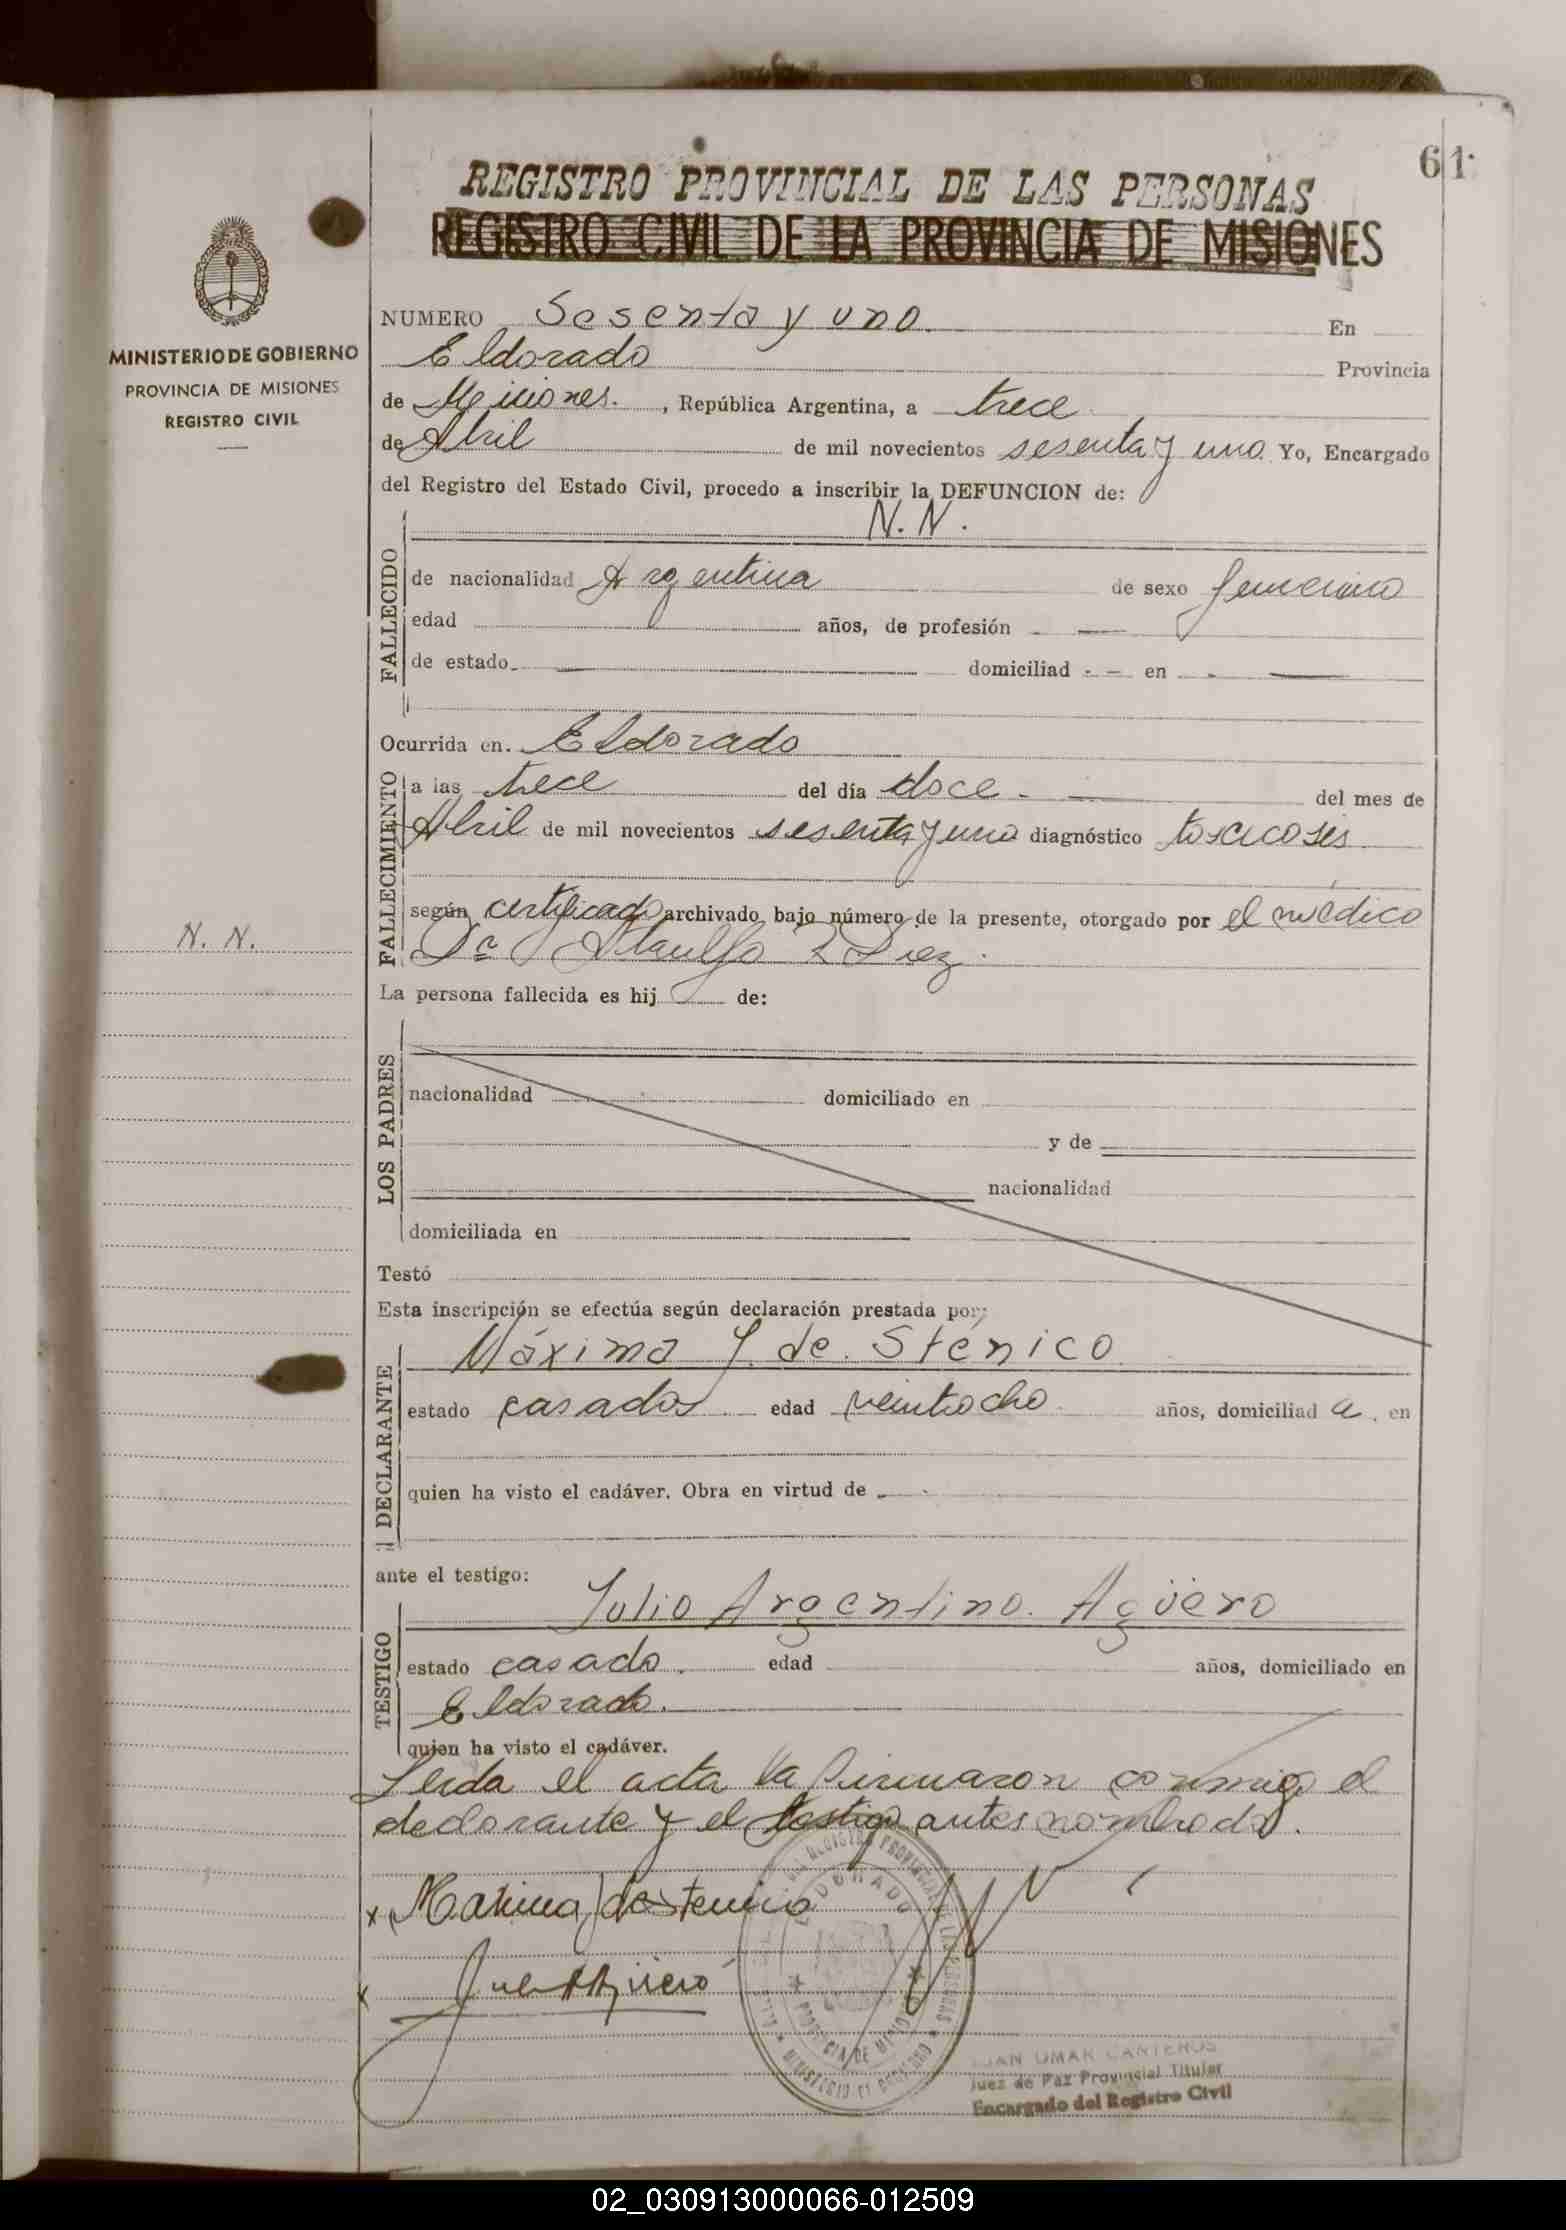 61
REGISTRO PROVINCIAL DE LAS PERSONAS
REGISTRO CIVIL DE LA PROVINCIA DE MISIONES
MINISTERIO DE GOBIERNO
PROVINCIA DE MISIONES
REGISTRO CIVIL
NUMERO Sesenta y uno. En
Eldorado Provincia
de Misiones. , República Argentina, a trece
de Abril de mil novecientos sesenta y uno. Yo, Encargado
del Registro del Estado Civil, procedo a inscribir la DEFUNCION de:
N. N.
FALLECIDO
de nacionalidad Argentina de sexo femenino
edad años, de profesión —
de estado — domiciliad - - en - —
Ocurrida en. Eldorado
FALLECIMIENTO
a las trece del día doce. — del mes de
Abril de mil novecientos sesenta y uno diagnóstico toxicosis
según certificado archivado bajo número de la presente, otorgado por el médico
N. N.
Dr Ataulfo Diez.
La persona fallecida es hij de:
LOS PADRES
nacionalidad domiciliado en
y de
nacionalidad
domiciliada en
Testó
Esta inscripción se efectúa según declaración prestada por:
DECLARANTE
Máxima J. de Sténico
estado casada edad veintiocho años, domiciliad a. en
quien ha visto el cadáver. Obra en virtud de
ante el testigo:
TESTIGO
Julio Argentino. Agüero
estado casado. edad años, domiciliado en
Eldorado.
quien ha visto el cadáver.
Leida el acta la firmaron conmigo el
declarante y el testigo antes nombrado.
x Maxima J de Stenico
x
ELDORADO
PROVINCIA DE MISIONES
MINISTERIO DE GOBIERNO
JUAN OMAR CANTEROS
Juez de Paz Provincial Titular
Encargado del Registro Civil
02_030913000066-012509